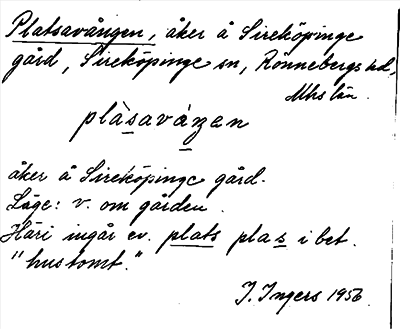 Platsavången, åker å Sireköpinge
gård, Sireköpinge sn, Rönnebergs hd,
Mhs län.
plàsaváŋen
åker å Sireköpinge gård.
Läge: v. om gården.
Häri ingår ev. plats plas i bet.
"hustomt."
I. Ingers 1956.